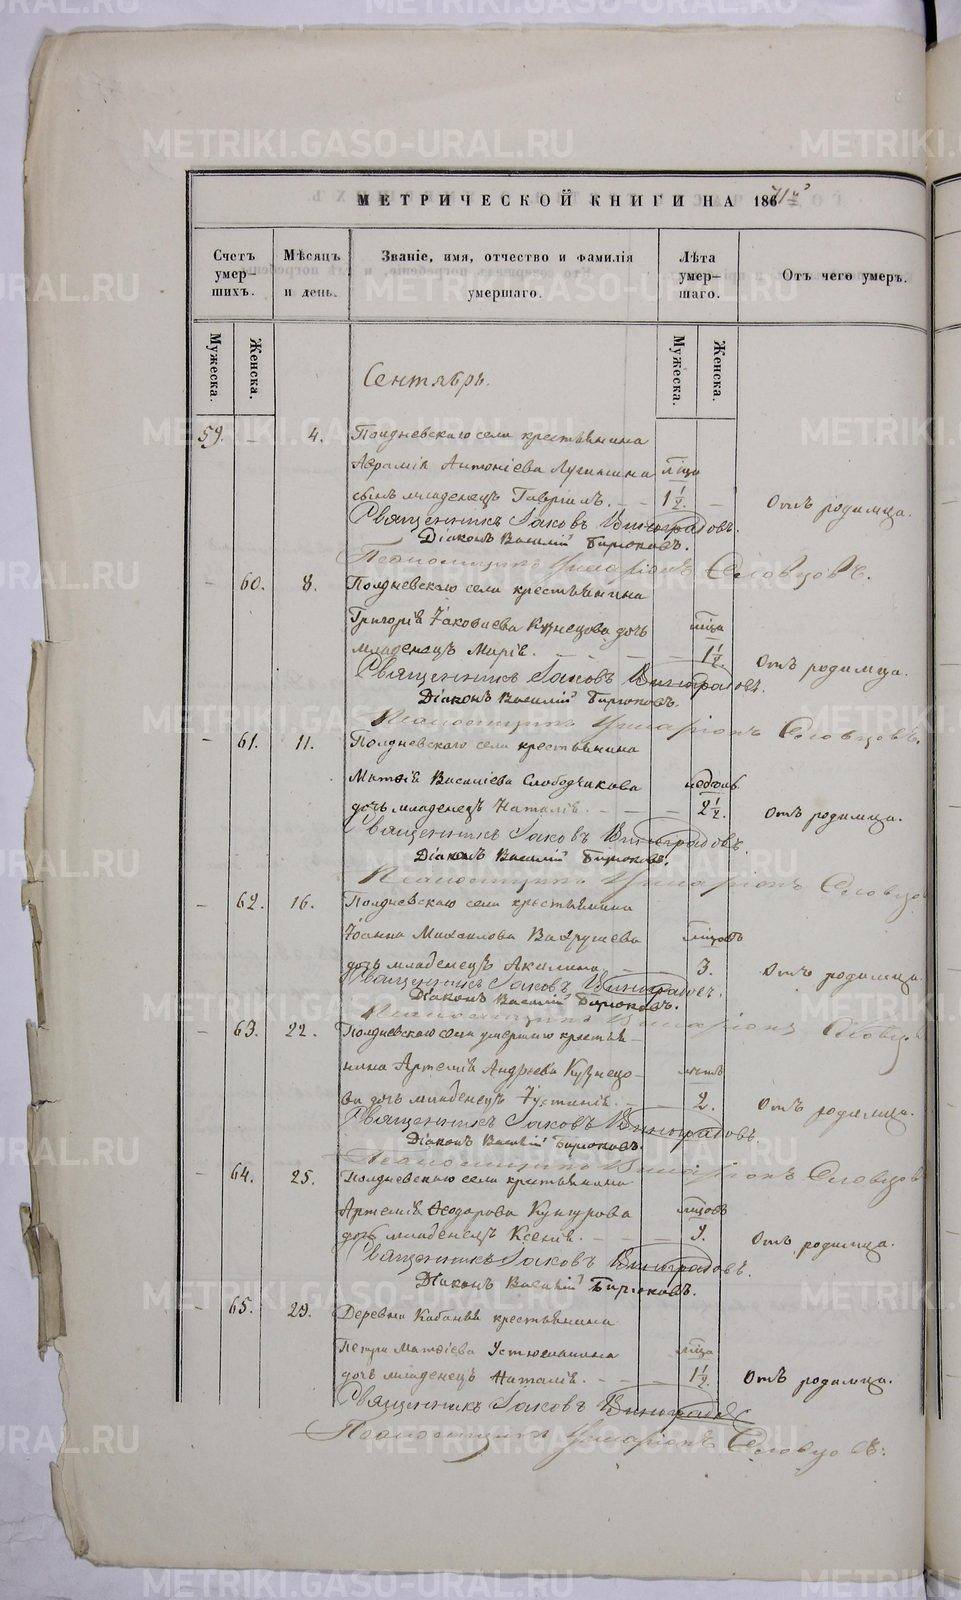 МЕТРИЧЕСКОЙ КНИГИ НА 1871й
Счетъ умер-шихъ.
Мѣсяцъ и день.
Званіе, имя, отчество и фамилія умершаго.
Лѣта умер-шаго.
Отъ чего умеръ.
Мужеска.
Женска.
Мужеска.
Женска.
Сентябрь.
59. - 4. Полдневскаго села крестьянина
Аврамія Антоніева Лучинина мѣсяца
сынъ младенецъ Гавріилъ. 1 1/2. - Отъ родимца.
Священникъ Іаковъ Виноградовъ.
Діаконъ Василій Бирюковъ.
Псаломщикъ Иларіонъ Словцовъ.
- 60. 8. Полдневскаго села крестьянина
Григорія Іаковлева Кузнецова дочь
младенецъ Марія. 1 1/2. Отъ родимца.
Священникъ Іаковъ Виноградовъ.
Діаконъ Василій Бирюковъ.
Псаломщикъ Иларіонъ Словцовъ.
- 61. 11. Полдневскаго села крестьянина
Матвія Василіева Слободчикова недѣль
дочь младенецъ Наталія. 2 1/2. Отъ родимца.
Священникъ Іаковъ Виноградовъ.
Діаконъ Василій Бирюковъ.
Псаломщикъ Иларіонъ Словцо
- 62. 16. Полдневскаго села крестьянина
Іоанна Михаилова Вахрушева
дочь младенецъ Акилина 3. Отъ родимца.
Священникъ Іаковъ Виноградовъ.
Діаконъ Василій Бирюковъ.
Псаломщикъ Иларіонъ Словцо
- 63. 22. Полдневскаго села умершаго крестья-
нина Артемія Андреева Кузнецо- лѣтъ
ва дочь младенецъ Іустинія. 2. Отъ родимца.
Священникъ Іаковъ Виноградовъ.
Діаконъ Василій Бирюковъ.
Псаломщикъ Иларіонъ Словцов
- 64. 25. Полдневскаго села крестьянина
Артемія Ѳеодорова Кунгурова
дочь младенецъ Ксенія. Отъ родимца.
Священникъ Іаковъ Виноградовъ.
Діаконъ Василій Бирюковъ.
- 65. 29. Деревни Кабаньей крестьянина
Петра Матвіева
дочь младенецъ Наталія. 1 1/2. Отъ родимца.
Священникъ Іаковъ Виноградов
Псаломщикъ Иларіонъ Словцовъ.
METRIKI.GASO-URAL.RU